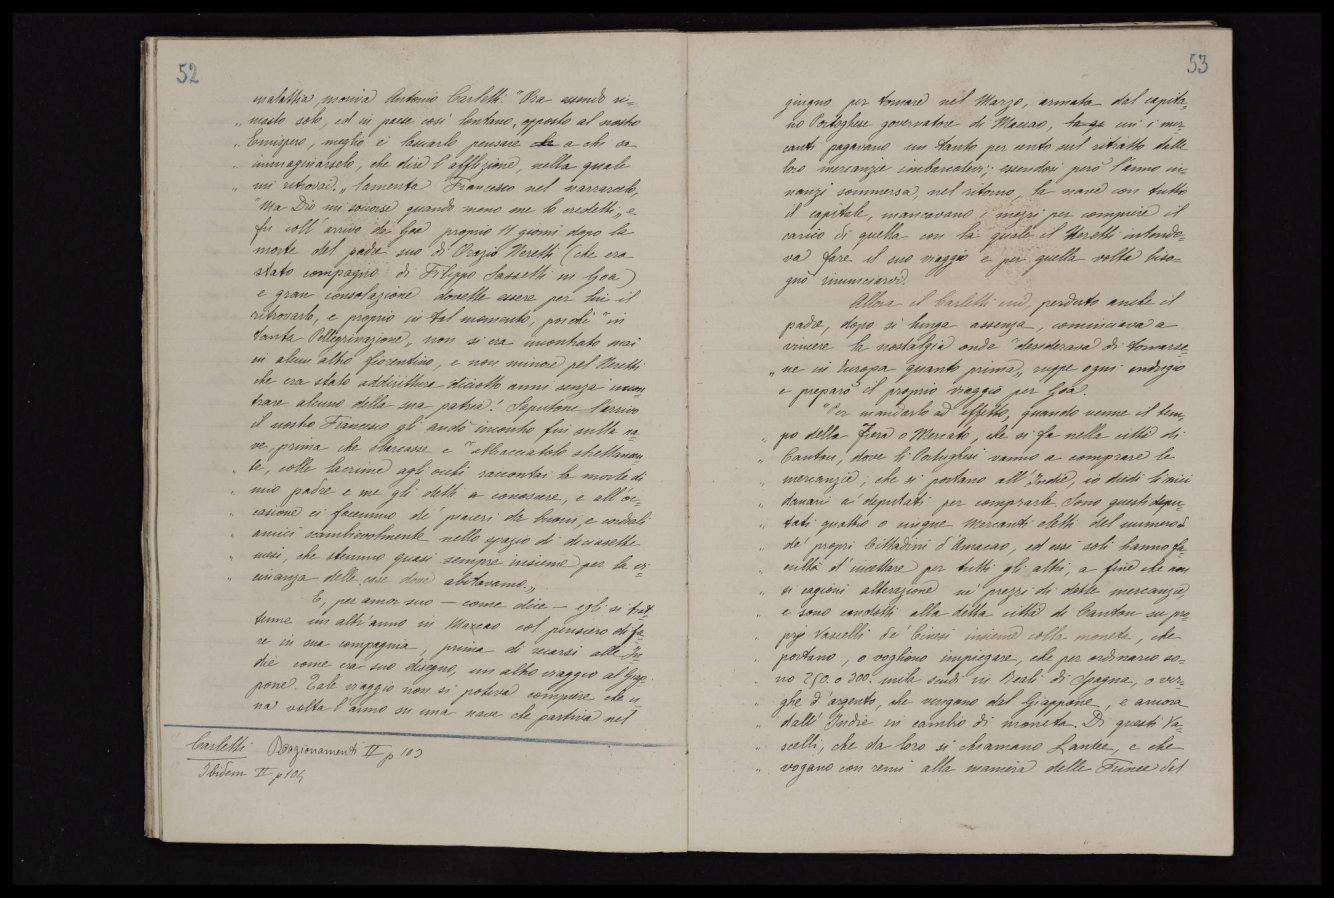 52
malattia moriva Antonio Carletti. "Ora essendo ri=
„ masto solo, ed in paese così lontano, opposto al nostro
„ Emispero, meglio è lasciarlo pensare a chi sa
„ immaginarselo, che dire l'afflizione, nella quale
„ mi ritrovai„ lamenta Francesco nel narrarcelo,
"Ma Dio mi soccorse quando meno me lo credetti„ e
fu coll'arrivo da Goa proprio 11 giorni dopo la
morte del padre suo di Orazio Neretti (che era
stato compagno di Filippo Sassetti in Goa)
e gran consolazione dovette essere per lui il
ritrovarlo, e proprio in tal momento, poichè "in
tanta Pellegrinazione„ non si era incontrato mai
in alcun altro fiorentino, e non minore pel Neretti
che era stato addirittura diciotto anni senza incon
trare alcuno della sua patria! Saputone l'arrivo
il nostro Francesco gli andò incontro fin sulla na=
ve, prima che sbarcasse e "abbracciatolo strettamen=
„ te, colle lacrime agli occhi raccontai la morte di
„ mio padre e me gli detti a conoscere, e all'oc=
„ casione ci facemmo de' piaceri da buoni, e cordiali
„ amici scambievolmente nello spazio di diciassette
„ mesi, che stemmo quasi sempre insieme per la vi=
„ cinanza delle case dove abitavamo„.
E, per amor suo — come dice — egli si trat
tenne un altr'anno in Macao col pensiero di fa=
re in sua compagnia, prima di recarsi alle In=
die come era suo disegno, un altro viaggio al Giap=
pone. Tale viaggio non si poteva compiere che u=
na volta l'anno su una nave che partiva nel
Carletti Ragionamenti II p 103
Ibidem II p 104
53
giugno per tornare nel Marzo, armata dal capita=
no Portoghese governatore di Macao, cui i mer=
canti pagavano un tanto per cento sul ritratto delle
loro mercanzie imbarcatevi; essendosi però l'anno in=
nanzi sommersa, nel ritorno, la nave con tutto
il capitale, mancavano i mezzi per compiere il
carico di quella con la quale il Neretti intende=
va fare il suo viaggio e per quella volta biso=
gnò rinunciarvi.
Allora il Carletti cui, perduto anche il
padre, dopo sì lunga assenza, cominciava a
vincere la nostalgia onde "desiderava di tornarse=
„ ne in Europa quanto prima„ ruppe ogni indugio
e preparò il proprio viaggio per Goa.
"Per mandarlo ad effetto, quando venne il tem=
„ po della fiera o Mercato, che si fa nella città di
„ Cantan, dove li Portughesi vanno a comprare le
„ mercanzie, che si portano all'Indie, io diedi li miei
„ danari a' deputati per comprarle. Sono questi depu=
„ tati quattro o cinque Mercanti eletti del numero
„ de' propri Cittadini d'Amacao, ed essi soli hanno fa=
„ coltà d'incettare per tutti gli altri, a fine che non
„ si cagioni alterazione ne' prezzi di dette mercanzie,
„ e sono condotti alla detta città di Cantan su pro=
„ prj Vascelli de' Cinesi insieme colla moneta, che
„ portano, o vogliono impiegare, che per ordinario so=
„ no 250. o 300. mila scudi in Reali di Spagna, o ver=
„ ghe d'argento, che vengono dal Giappone, e ancora
„ dall'Indie in cambio di moneta. Di questi Va=
„ scelli, che da loro si chiamano Lantee, e che
„ vogano con remi alla maniera delle Funee del